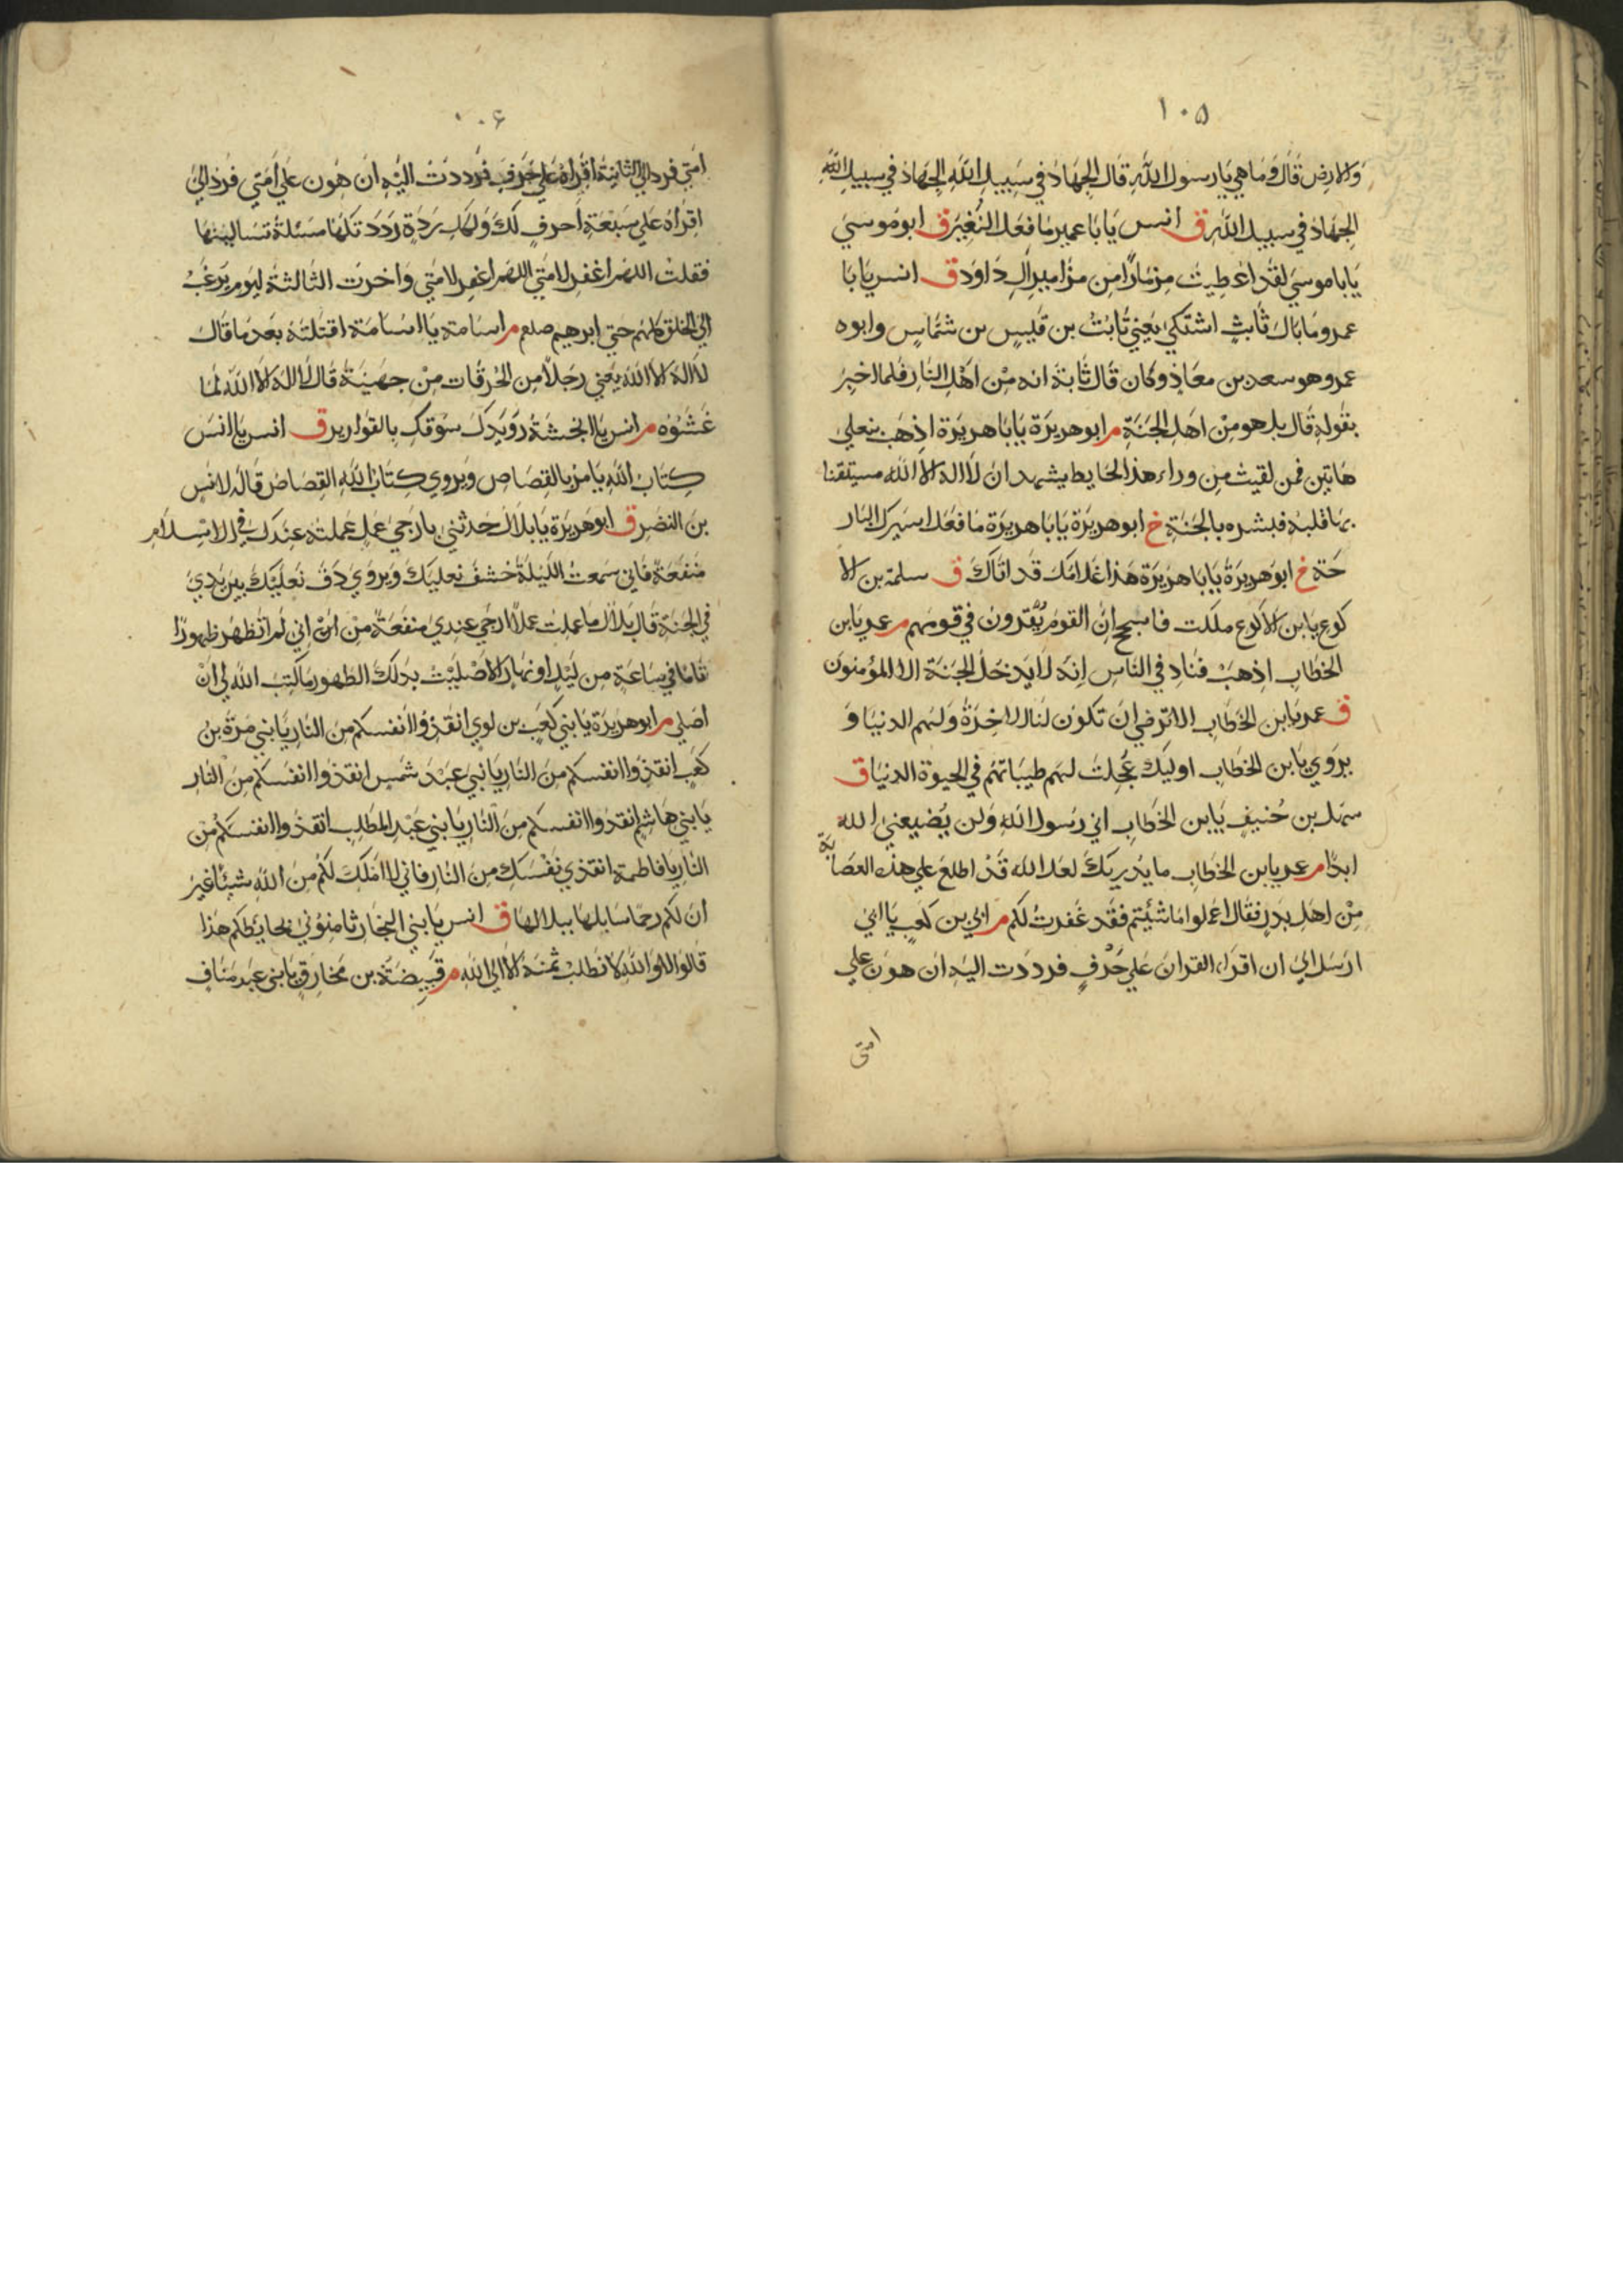 ١٠٥
والارض قال وما هي يا رسول الله قال الجهاد في سبيل الله الجهاد في سبيل الله
الجهاد في سبيل الله ق انس يا با عمير ما فعل النغير ق ابو موسي
يا با موسي لقد اعطيت مزمارا من مزامير ال داود ق انس يا با
عمرو ما بال ثابت اشتكي يعني ثابت بن قيس بن شماس وابوه
عمرو هو سعد بن معاذ وكان قال ثابت انه من اهل النار فلما اخبر
بقوله قال بل هو من اهل الجنة م ابو هريرة يا با هريرة اذهب بنعلي
هاتين فمن لقيت من وراء هذا الحايط يشهد ان لا اله الا الله مستيقنا
بها قلبه فبشره بالجنة خ ابو هريرة يا با هريرة ما فعل اسيرك البار
حة خ ابو هريرة يا با هريرة هذا غلامك قد اتاك ق سلمة بن الا
كوع يا بن الاكوع ملكت فاسجح ان القوم يقرون في قومهم م عمر يا بن
الخطاب اذهب فناد في الناس انه لا يدخل الجنة الا المؤمنون
ق عمر يا بن الخطاب الا ترضي ان تكون لنا الاخرة ولهم الدنيا و
يروي يا بن الخطاب اوليك عجلت لهم طيباتهم في الحيوة الدنيا ق
سهل بن حنيف يا بن الخطاب اني رسول الله ولن يضيعني الله
ابدا م عمر يا بن الخطاب ما يدريك لعل الله قد اطلع علي هذه العصابة
من اهل بدر فقال اعملوا ما شئتم فقد غفرت لكم م ابي بن كعب يا ابي
ارسل الي ان اقراء القران علي حرف فرددت اليه ان هون علي
امتي
١٠۶
امتي فرد الي الثانية اقراه علي حرف فرددت اليه ان هون علي امتي فرد الي
اقراه علي سبعة احرف لك ولك بكل ردة رددتكها مسئلة تسالينها
فقلت اللهم اغفر لامتي اللهم اغفر لامتي واخرت الثالثة ليوم يرغب
الي الخلق كلهم حتي ابرهيم صلعم م اسامة يا اسامة اقتلته بعد ما قال
لا اله الا الله يعني رجلا من الحرقات من جهينة قال لا اله الا الله لما
غشوه م انس يا انجشة رويدك سوقك بالقوارير ق انس يا انس
كتاب الله يامر بالقصاص ويروي كتاب الله القصاص قاله لانس
بن النضر ق ابو هريرة يا بلال حدثني بارجي عمل عملته عندك في الاسلام
منفعة فاني سمعت الليلة خشف نعليك ويروي دف نعليك بين يدي
في الجنة قال بلال ما عملت عملا ارجي عندي منفعة من اني لم اتطهر طهورا
تاما في ساعة من ليل او نهار الا صليت بذلك الطهور ما كتب الله لي ان
اصلي م ابو هريرة يا بني كعب بن لوي انقذوا انفسكم من النار يا بني مرة بن
كعب انقذوا انفسكم من النار يا بني عبد شمس انقذوا انفسكم من النار
يا بني هاشم انقذوا انفسكم من النار يا بني عبد المطلب انقذوا انفسكم من
النار يا فاطمة انقذي نفسك من النار فاني لا املك لكم من الله شيئا غير
ان لكم رحما سابلها ببلالها ق انس يا بني النجار ثامنوني بحائطكم هذا
قالوا لا والله لا نطلب ثمنه الا الي الله م قبيضة بن مخارق يا بني عبد مناف